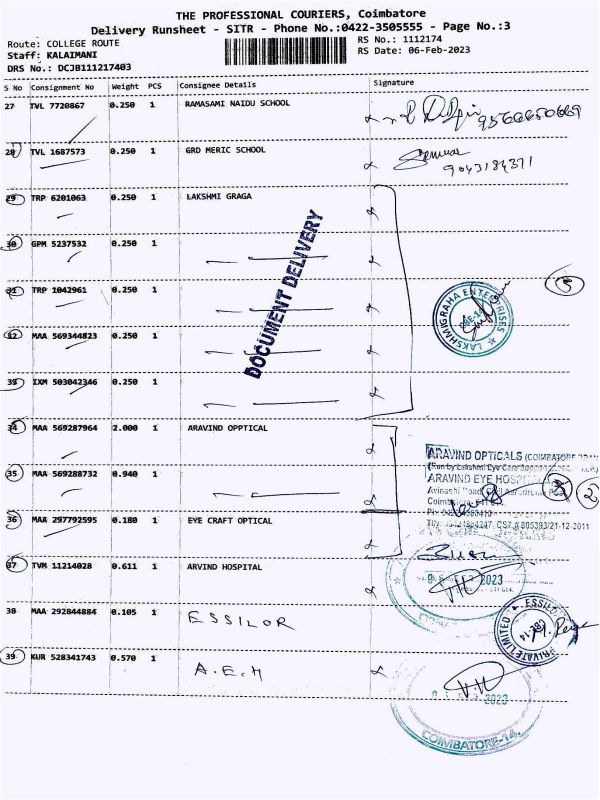 THE PROFESSIONAL COURIERS, Coimbatore
Delivery Runsheet - SITR - Phone No.:0422-3505555 - Page No.:3
Route: COLLEGE ROUTE
RS No.: 1112174
Staff: KALAIMANI
RS Date: 06-Feb-2023
DRS No.: DCJB111217403
S No Consignment No Weight PCS Consignee Details Signature
27 TVL 7720867 0.250 1 RAMASAMI NAIDU SCHOOL
28 TVL 1687573 0.250 1 GRD MERIC SCHOOL
9043184371
29 TRP 6201063 0.250 1 LAKSHMI GRAGA
30 GPM 5237532 0.250 1
31 TRP 1042961 0.250 1
32 MAA 569344823 0.250 1
33 IXM 503042346 0.250 1
DOCUMENT DELIVERY
LAKSHMIGRAHA ENTERPRISES
CBE-14
34 MAA 569287964 2.000 1 ARAVIND OPPTICAL
35 MAA 569288732 0.940 1
ARAVIND OPTICALS (COIMBATORE
(Run by Lakshmi Eye Care
ARAVIND EYE HOSPITAL
Avinashi Road,
CST # 805393/21-12-2011
36 MAA 297792595 0.180 1 EYE CRAFT OPTICAL
37 TVM 11214028 0.611 1 ARVIND HOSPITAL
2023
38 MAA 292844884 0.105 1 ESSILOR
PRIVATE LIMITED
39 KUR 528341743 0.570 1 A.E.H
2023
COIMBATORE-14.